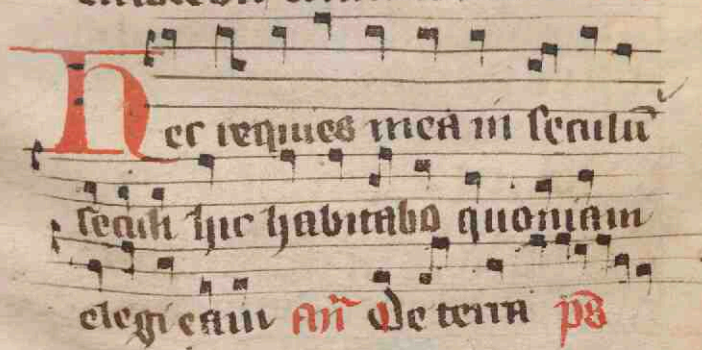 Hec requies mea in seculū
seculi hic habitabo quoniam
elegi eam Añ De terra ps